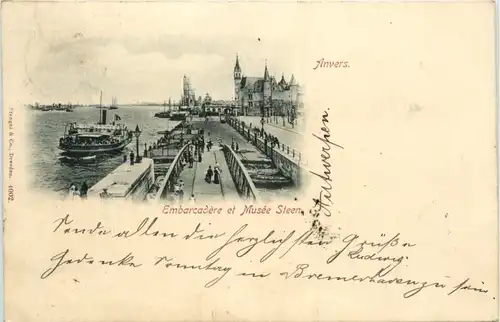 Anvers.
Antwerpen.
Stengel & Co., Dresden. 6092.
Embarcadère et Musée Steen.
Sende allen die herzlichsten Grüße
Ludwig.
Gedenke Sonntag in Bremerhaven zu sein.